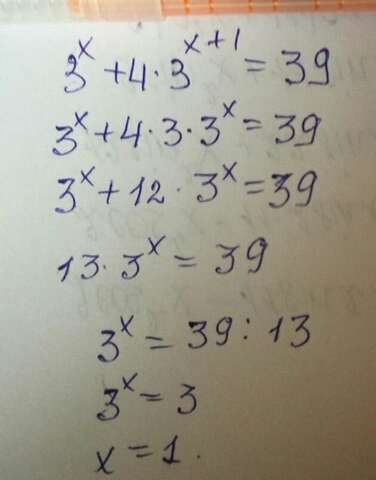 3^x + 4 · 3^(x+1) = 39
3^x + 4 · 3 · 3^x = 39
3^x + 12 · 3^x = 39
13 · 3^x = 39
3^x = 39 : 13
3^x = 3
x = 1.